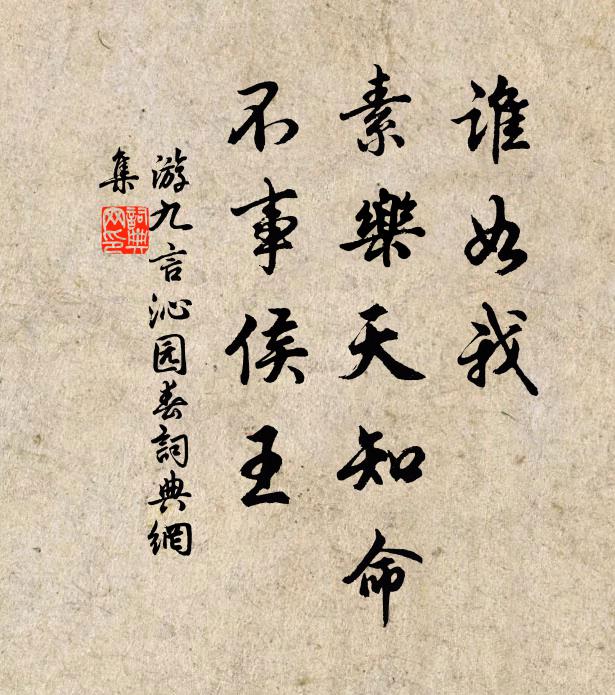 誰如我
素樂天知命
不事侯王
游九言沁园春詞典網
集
詞典網印